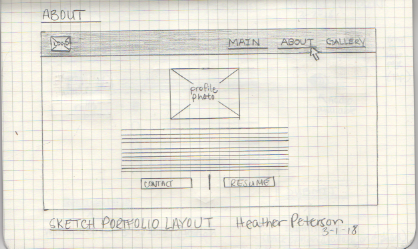 ABOUT
MAIN ABOUT GALLERY
profile
photo
CONTACT RESUME
SKETCH PORTFOLIO LAYOUT Heather Peterson
3-1-18